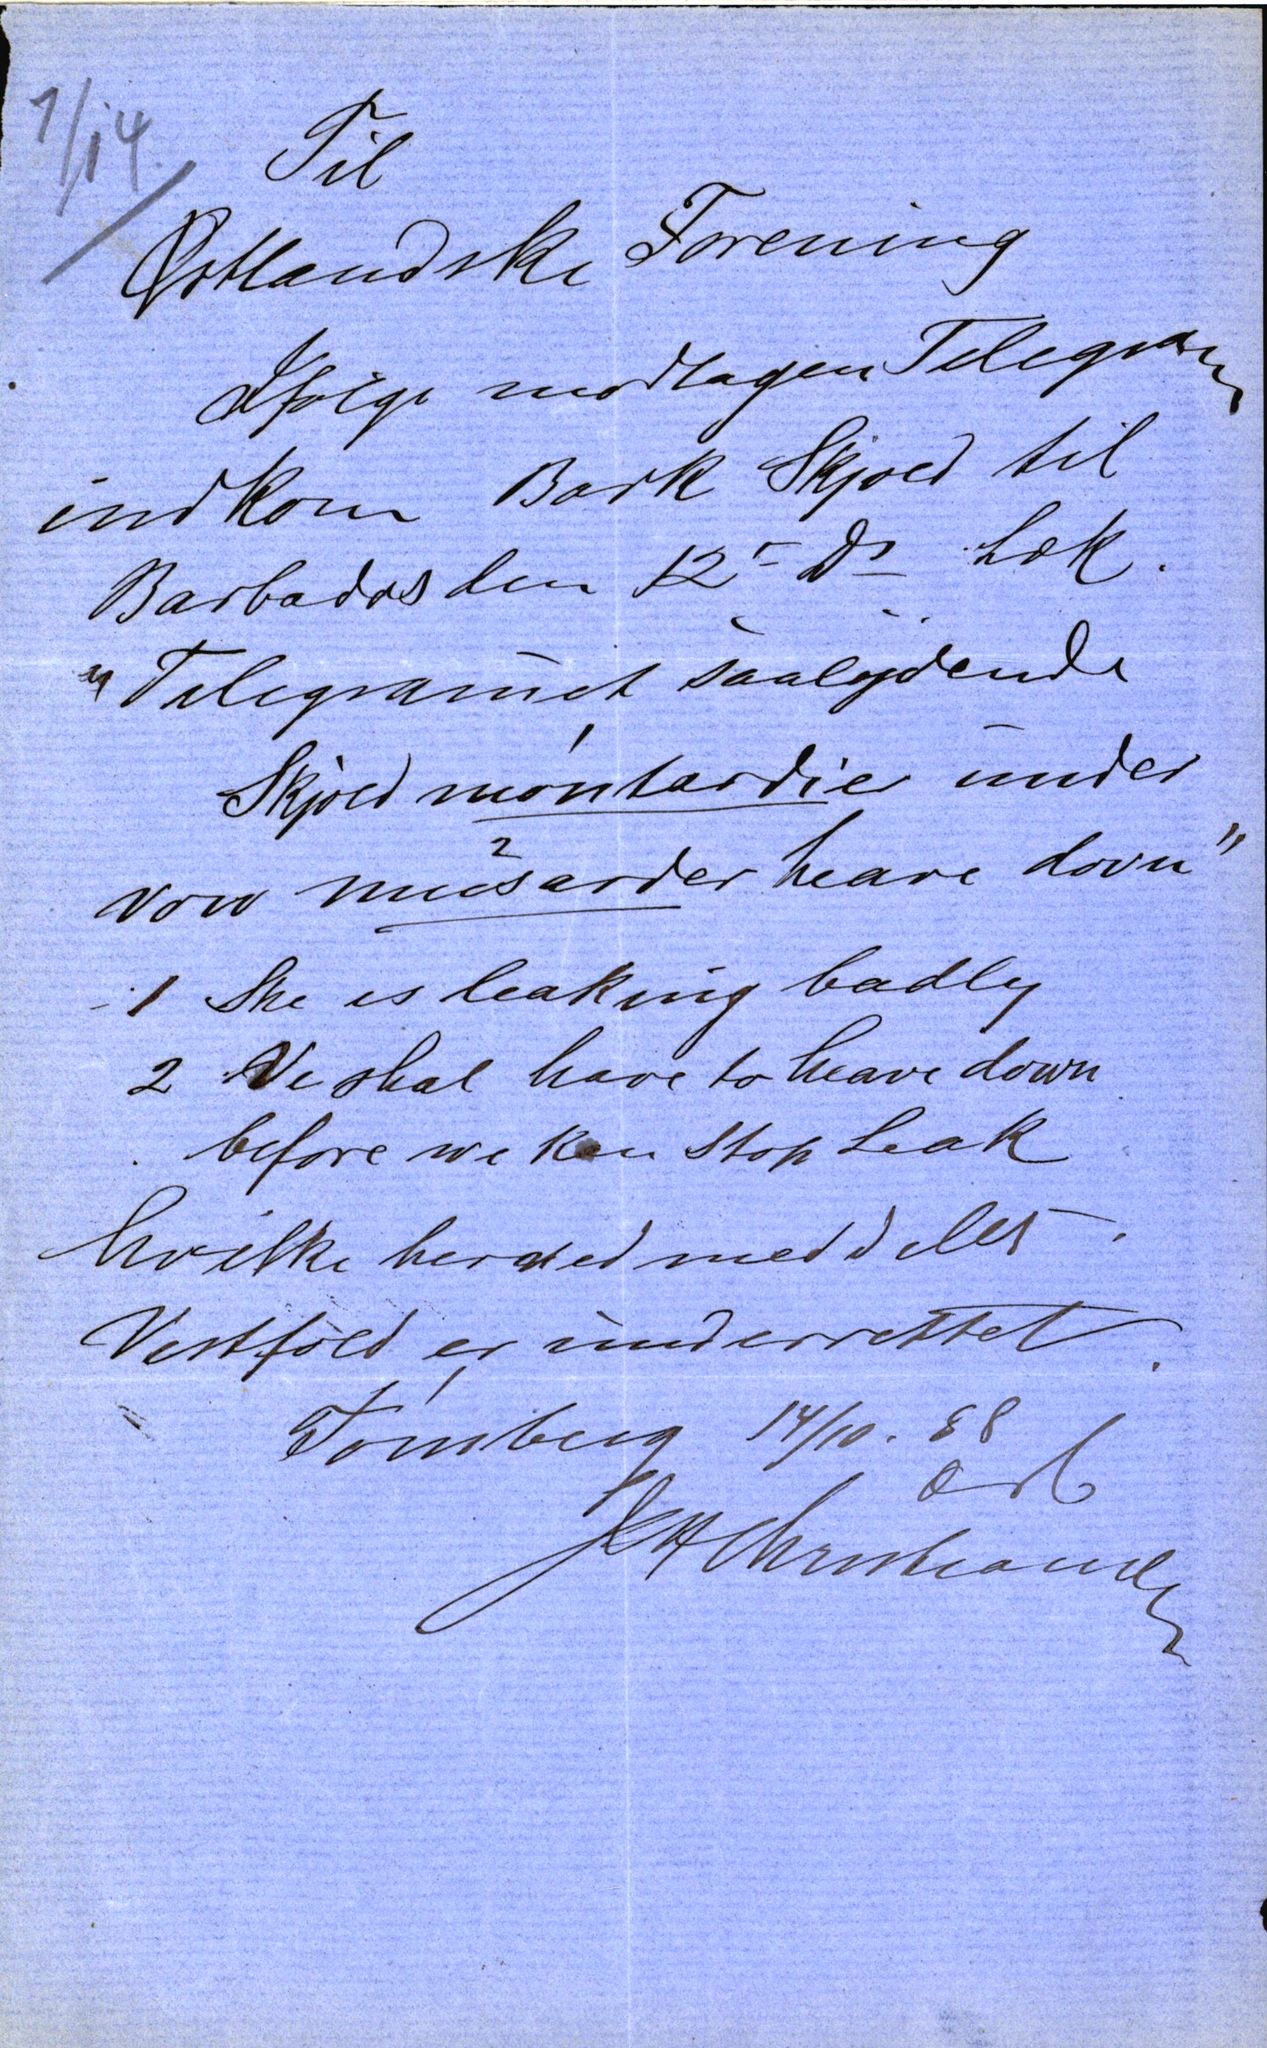 7/14.
Til
Østlandske Forening
Ifølge modtagen Telegram
indkom Bark Skjold til
Barbados den 12' Ds Læk.
"Telegramet saalydende
1
Skjold montardier under
2
vow musarder heave down"
1 She is leaking badly
2 We shal have to heave down
before we kan stop Leak
hvilke herved meddeles.
Vestfold er underrettet.
Tønsberg 14/10. 88
Ærb
Christiansen